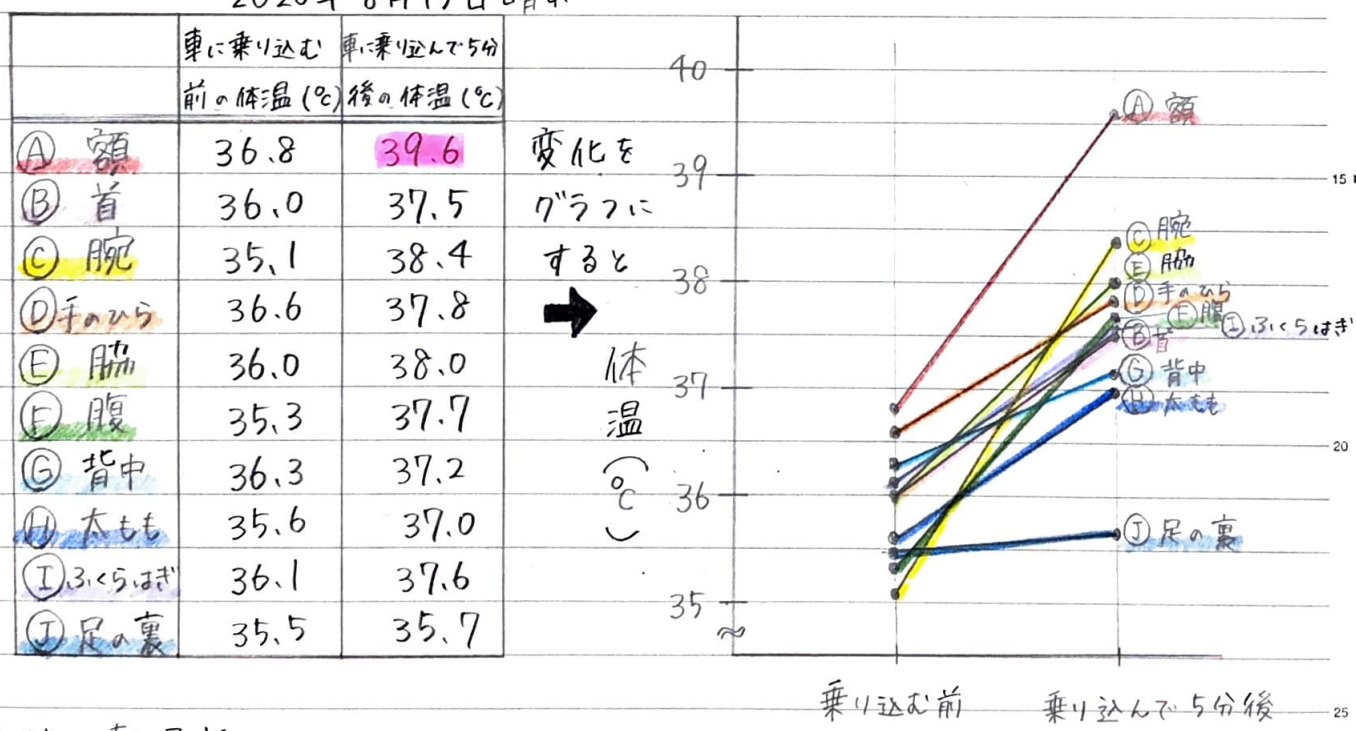 車に乗り込む前の体温(℃)
車に乗り込んで5分後の体温(℃)
Ⓐ 額 36.8 39.6
Ⓑ 首 36.0 37.5
Ⓒ 腕 35.1 38.4
Ⓓ 手のひら 36.6 37.8
Ⓔ 脇 36.0 38.0
Ⓕ 腹 35.3 37.7
Ⓖ 背中 36.3 37.2
Ⓗ 太もも 35.6 37.0
Ⓘ ふくらはぎ 36.1 37.6
Ⓙ 足の裏 35.5 35.7
変化を
グラフに
すると
➡
体温(℃)
40
39
38
37
36
35
Ⓐ 額
Ⓒ 腕
Ⓔ 脇
Ⓓ 手のひら
Ⓕ 腹
Ⓘ ふくらはぎ
Ⓑ 首
Ⓖ 背中
Ⓗ 太もも
Ⓙ 足の裏
乗り込む前 乗り込んで5分後
15
20
25